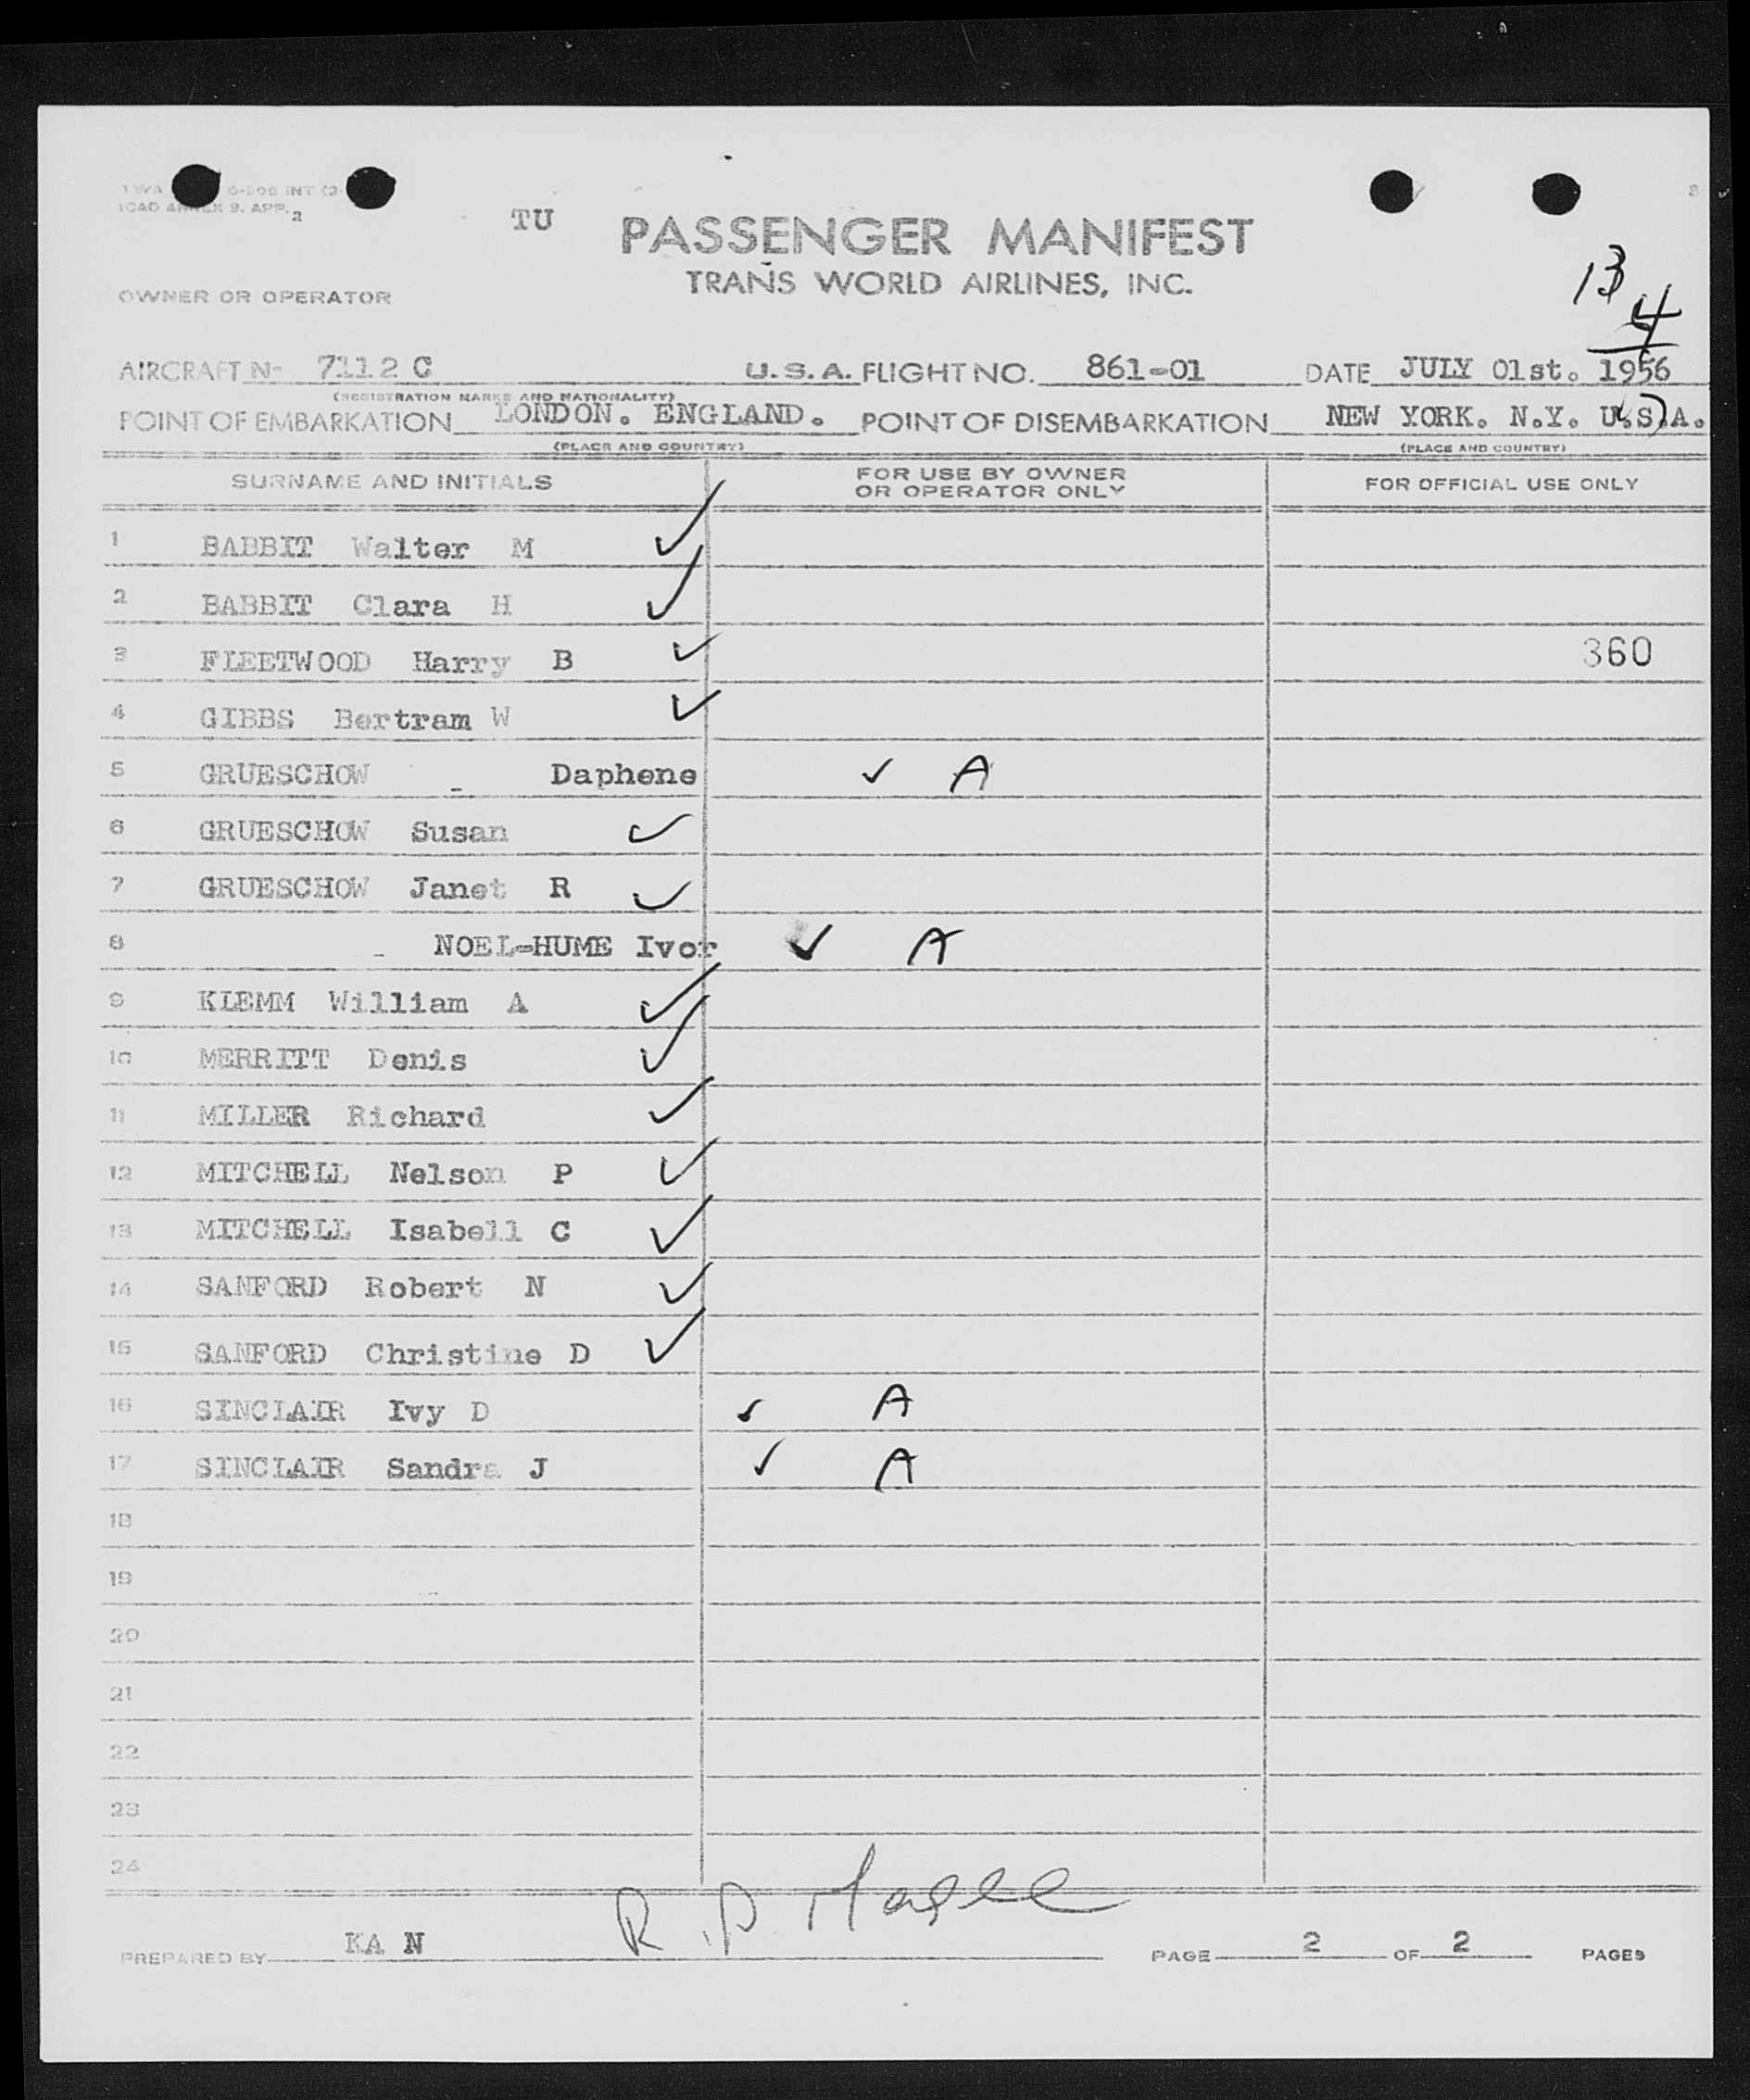 ICAO ANNEX 9. APP. 2
TU PASSENGER MANIFEST
TRANS WORLD AIRLINES, INC.
13
4
OWNER OR OPERATOR
AIRCRAFT N- 7112 C U.S.A. FLIGHT NO. 861-01 DATE JULY 01st. 1956
(REGISTRATION MARKS AND NATIONALITY)
POINT OF EMBARKATION LONDON. ENGLAND. POINT OF DISEMBARKATION NEW YORK. N.Y. U.S.A.
(PLACE AND COUNTRY) (PLACE AND COUNTRY)
SURNAME AND INITIALS FOR USE BY OWNER OR OPERATOR ONLY FOR OFFICIAL USE ONLY
1 BABBIT Walter M ✓
2 BABBIT Clara H ✓
3 FLEETWOOD Harry B ✓ 360
4 GIBBS Bertram W ✓
5 GRUESCHOW Daphene ✓ A
6 GRUESCHOW Susan ✓
7 GRUESCHOW Janet R ✓
8 NOEL-HUME Ivor ✓ A
9 KLEMM William A ✓
10 MERRITT Denis ✓
11 MILLER Richard ✓
12 MITCHELL Nelson P ✓
13 MITCHELL Isabell C ✓
14 SANFORD Robert N ✓
15 SANFORD Christine D ✓
16 SINCLAIR Ivy D ✓ A
17 SINCLAIR Sandra J ✓ A
18
19
20
21
22
23
24
PREPARED BY KA N R.P. PAGE 2 OF 2 PAGES